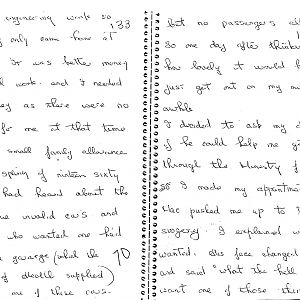 engineering work so
133
only came home at
It was better money
work and I needed
as there were no
for me at that time
small family allowance
spring of nineteen sixty
had heard about the
invalid cars and
who wanted one had
garage (what the 70
of Health supplied)
me of these cars.
but no passengers
So one day after thinking
how lovely it would
just get out on my own
awhile
I decided to ask my
if he could help me
through the Ministry
so I made my appointment
Mac pushed me up to
surgery. I explained
wanted. His face changed
and said "what the hell
want one of those